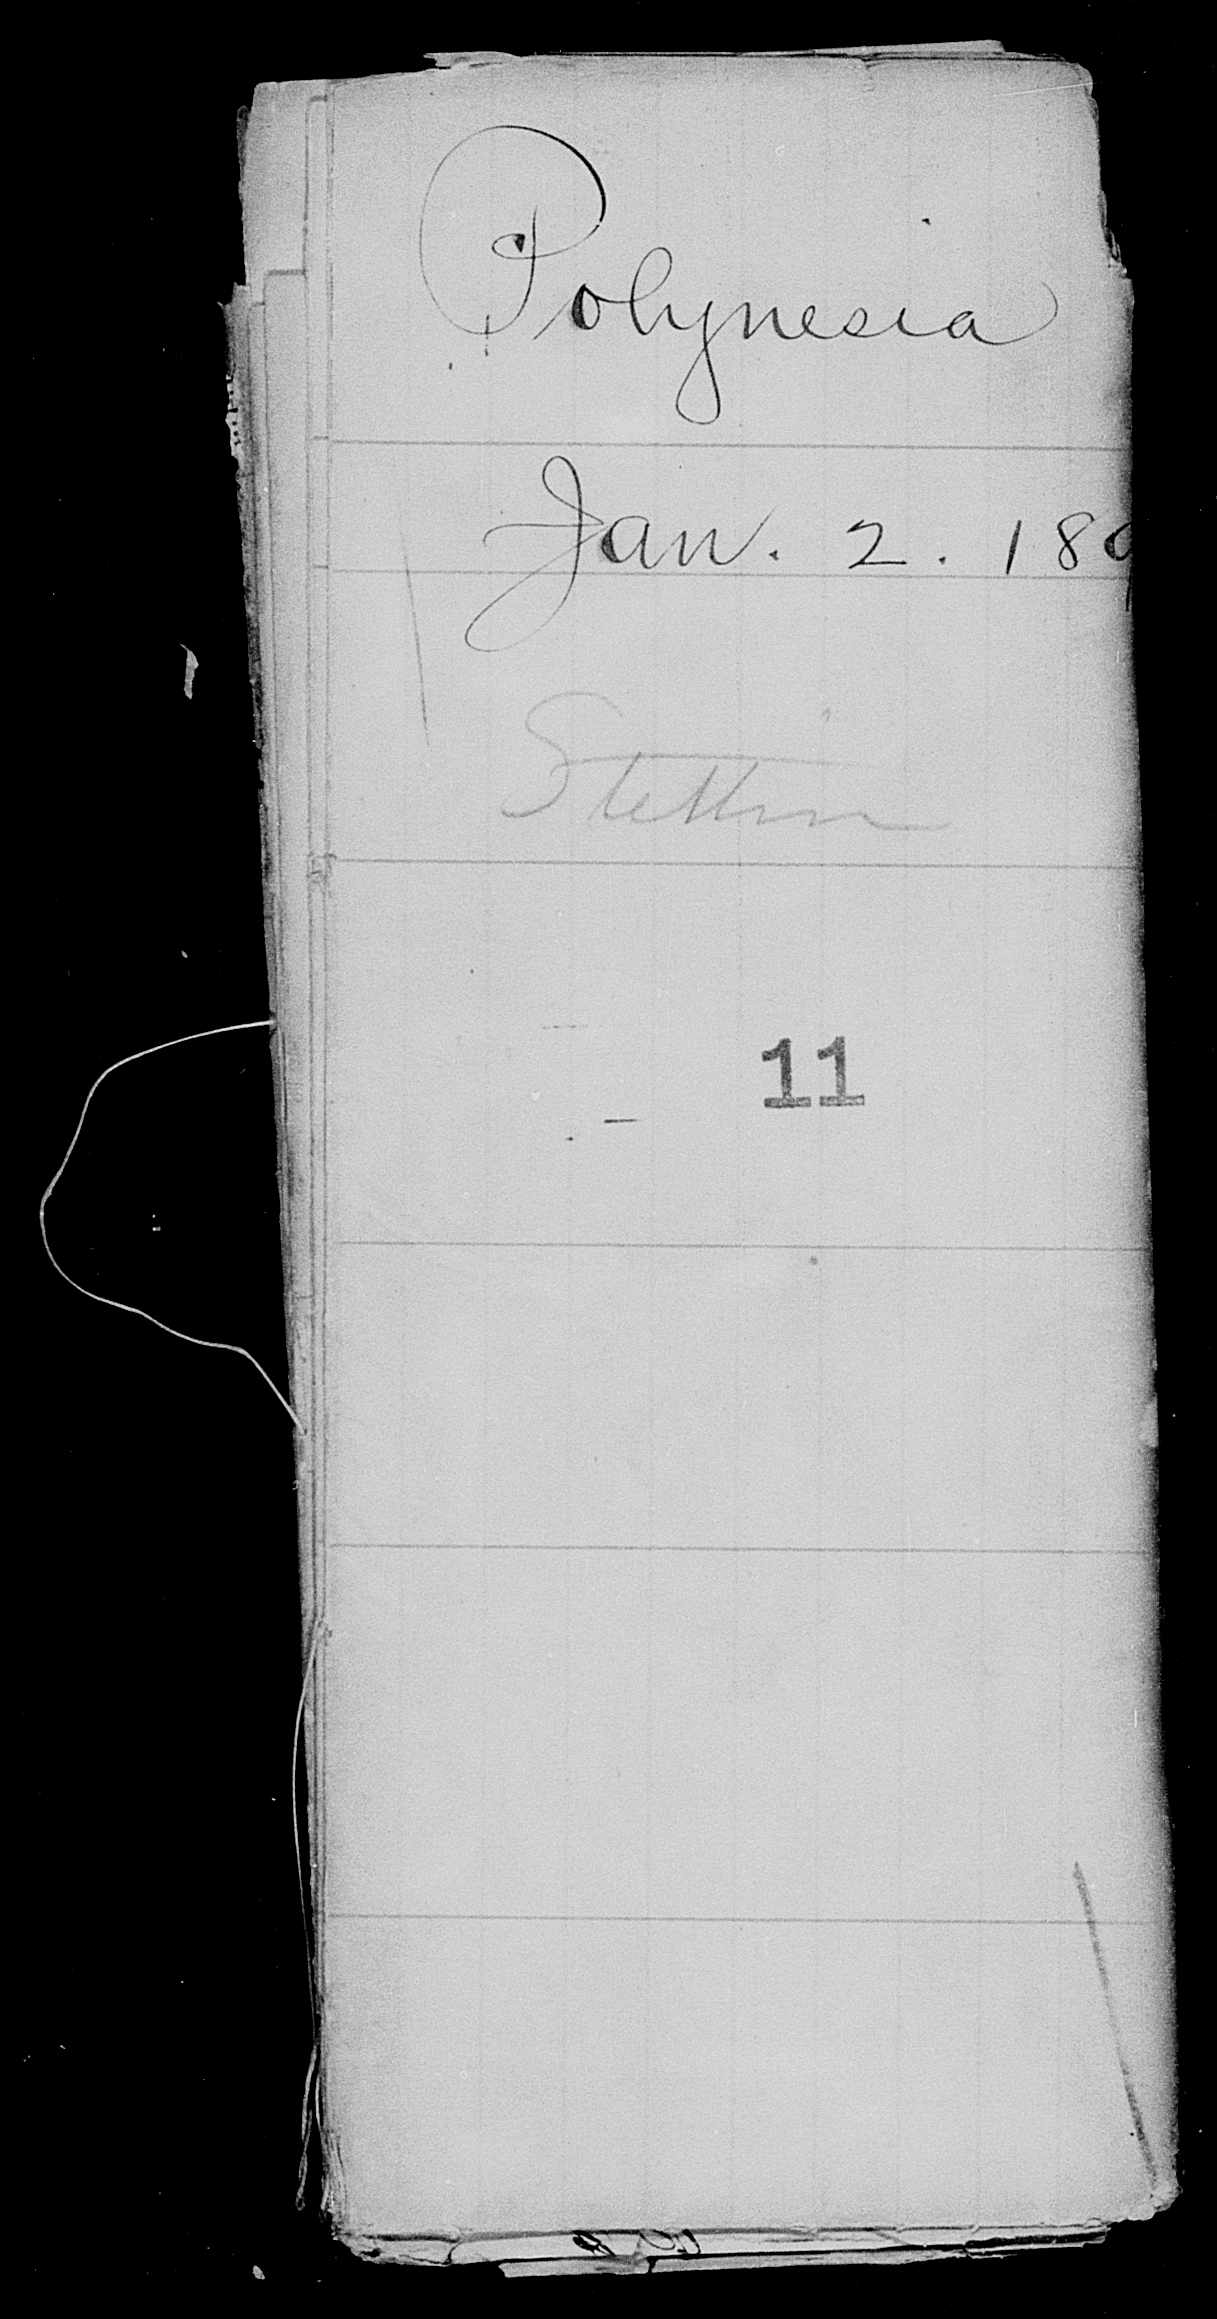 Polynesia
Jan. 2. 189
Stettin
11